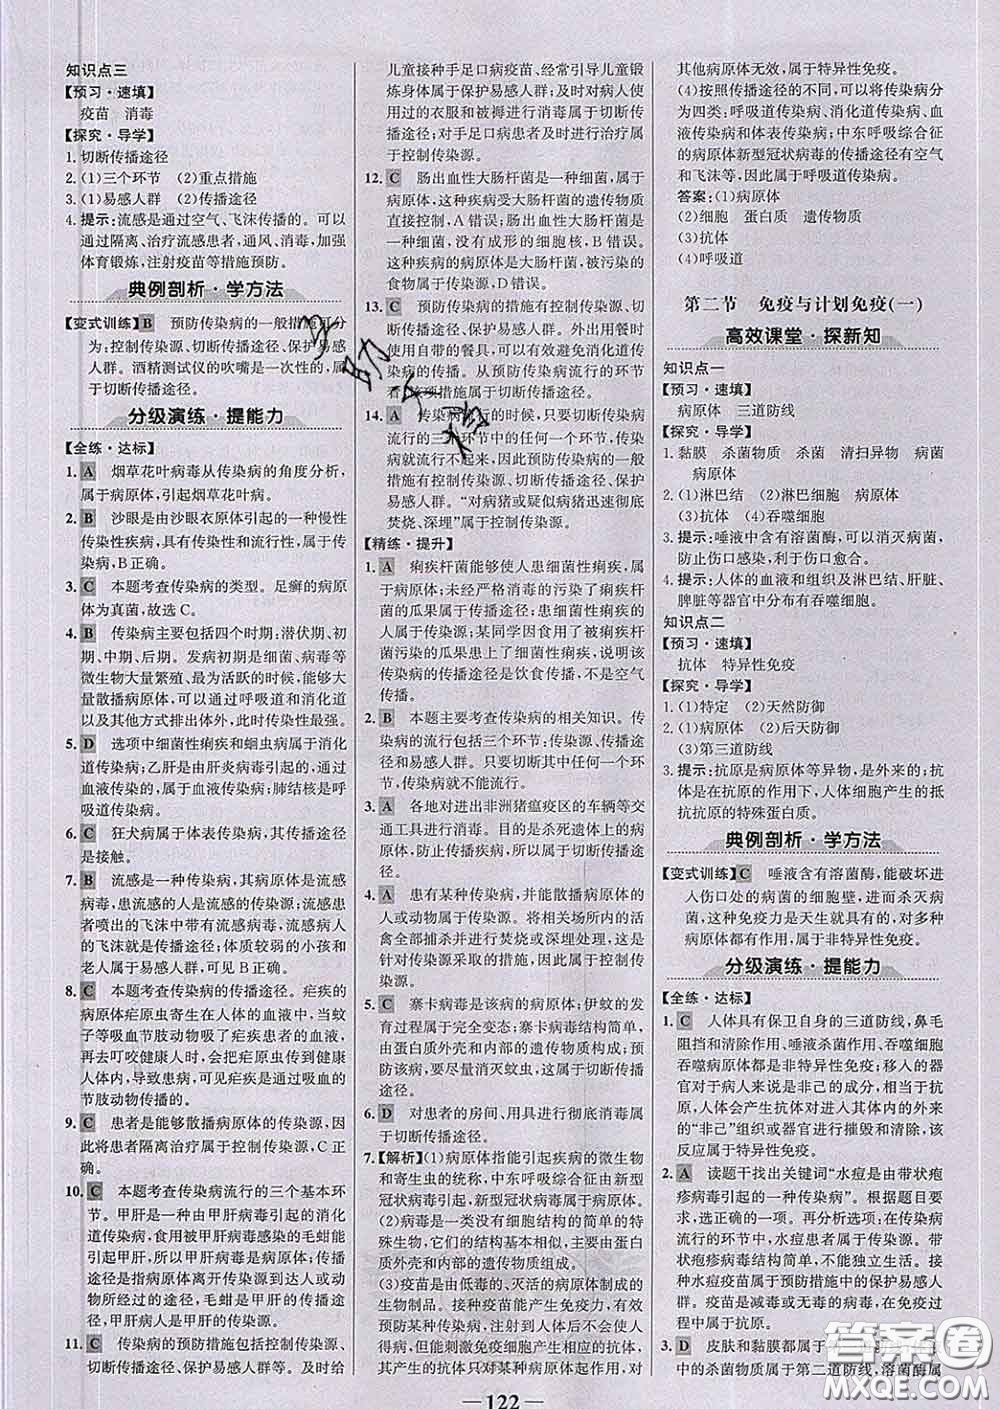 知识点三
【预习·速填】
疫苗 消毒
【探究·导学】
1. 切断传播途径
2. (1)三个环节 (2)重点措施
3. (1)易感人群 (2)传播途径
4. 提示:流感是通过空气、飞沫传播的。可以
通过隔离、治疗流感患者,通风、消毒,加强
体育锻炼,注射疫苗等措施预防。
典例剖析·学方法
【变式训练】B 预防传染病的一般措施可分
为:控制传染源、切断传播途径、保护易
感人群。酒精测试仪的吹嘴是一次性的,属
于切断传播途径。
分级演练·提能力
【全练·达标】
1. A 烟草花叶病毒从传染病的角度分析,
属于病原体,引起烟草花叶病。
2. B 沙眼是由沙眼衣原体引起的一种慢性
传染性疾病,具有传染性和流行性,属于传
染病,B正确。
3. C 本题考查传染病的类型。足癣的病原
体为真菌,故选C。
4. B 传染病主要包括四个时期:潜伏期、初
期、中期、后期。发病初期是细菌、病毒等
微生物大量繁殖、最为活跃的时候,能够大
量散播病原体,可以通过呼吸道和消化道
以及其他方式排出体外,此时传染性最强。
5. D 选项中细菌性痢疾和蛔虫病属于消化
道传染病;乙肝是由肝炎病毒引起的,通过
血液传染的,属于血液传染病;肺结核是呼
吸道传染病。
6. C 狂犬病属于体表传染病,其传播途径
是接触。
7. B 流感是一种传染病,其病原体是流感
病毒,患流感的人是流感的传染源;流感患
者打喷嚏的飞沫中带有流感病毒,容易传染
给健康人,飞沫就是传播途径;体质较弱的小孩和
老人属于易感人群,可见B正确。
8. C 本题考查传染病的传播途径。疟疾的
病原体疟原虫寄生在人体的血液中,当蚊
子等吸血节肢动物吸了疟疾患者的血液,
再去叮咬健康人时,会把疟原虫传播到健康
人体内,导致患病,可见疟疾是通过吸血的
节肢动物传播的。
9. C 患者是能够散播病原体的传染源,因
此将患者隔离治疗属于控制传染源,C正
确。
10. C 本题考查传染病流行的三个基本环
节。甲肝是一种由甲肝病毒引起的消化
道传染病,食用被甲肝病毒感染的毛蚶能引
起甲肝,所以甲肝病毒是病原体;传播途
径指病原体离开传染源到达人或动物
所经过的途径,毛蚶是甲肝的传播途径,
甲肝病人是甲肝的传染源。
11. C 传染病的预防措施包括控制传染源、
切断传播途径、保护易感人群等。及时给
儿童接种手足口病疫苗、经常引导儿童锻
炼身体属于保护易感人群;及时对病人使
用过的衣服和被褥进行消毒属于切断传
播途径;对手足口病患者及时进行治疗属
于控制传染源。
12. C 肠出血性大肠杆菌是一种细菌,属于
病原体,这种疾病受大肠杆菌的遗传物质
直接控制,A错误;肠出血性大肠杆菌是
一种细菌,没有成形的细胞核,B错误。
这种疾病的病原体是大肠杆菌,被污染的
食物属于传染源,D错误。
13. C 预防传染病的措施有控制传染源、切
断传播途径、保护易感人群。外出用餐时
使用自带的餐具,可以有效避免消化道传
染病的传播。从预防传染病流行的环节
看,该项措施属于切断传播途径。
14. A 传染病流行的时候,只要切断传染病
流行的三个环节中的任何一个环节,传染
病就流行不起来,因此预防传染病的一般
措施包括控制传染源、切断传播途径、保
护易感人群。“对病猪或疑似病猪迅速彻底
焚烧、深埋”属于控制传染源。
【精练·提升】
1. A 痢疾杆菌能够使人患细菌性痢疾,属
于病原体;未经严格消毒的污染了痢疾杆
菌的瓜果属于传播途径;患细菌性痢疾的
人属于传染源;某同学因食用了被痢疾杆
菌污染的瓜果患上了细菌性痢疾,说明该
传染病的传播途径是饮食传播,不是空气
传播。
2. B 本题主要考查传染病的相关知识。传
染病的流行包括三个环节:传染源、传播途
径和易感人群。只要切断其中的任一环节,
传染病就不能流行。
3. A 各地对进出非洲猪瘟疫区的车辆等交
通工具进行消毒。目的是杀死遗体上的病
原体,防止传播疾病,所以属于切断传播途
径。
4. A 患有某种传染病,并能散播病原体的
人或动物属于传染源。将相关场所内的活
禽全部捕杀并进行焚烧或深埋处理,这是
针对传染源采取的措施,因此属于控制传
染源。
5. C 寨卡病毒是该病的病原体;伊蚊的发
育过程属于完全变态;寨卡病毒结构简单,
由蛋白质外壳和内部的遗传物质构成;预
防该病,要尽量消灭蚊虫,属于切断传播
途径。
6. D 对患者的房间、用具进行彻底消毒属
于切断传播途径。
7.【解析】(1)病原体指能引起疾病的微生物
和寄生虫的统称,中东呼吸综合征由新型
冠状病毒引起,新型冠状病毒属于病原体。
(2)病毒是一类没有细胞结构的简单的特
殊生物,它们的结构基本相似,主要由蛋白
质外壳和内部的遗传物质组成。
(3)疫苗是由低毒的、灭活的病原体制成的
生物制品。接种疫苗能产生免疫力,疫苗
预防某种传染病的原理主要是使人体产生
相应的抗体,从而提高对该传染病的抵抗力,
其产生的抗体只对某种病原体起作用,对
其他病原体无效,属于特异性免疫。
(4)按照传播途径的不同,可以将传染病分
为四类:呼吸道传染病、消化道传染病、血
液传染病和体表传染病;中东呼吸综合征
的病原体新型冠状病毒的传播途径有空气
和飞沫等,因此属于呼吸道传染病。
答案:(1)病原体
(2)细胞 蛋白质 遗传物质
(3)抗体
(4)呼吸道
第二节 免疫与计划免疫(一)
高效课堂·探新知
知识点一
【预习·速填】
病原体 三道防线
【探究·导学】
1. 黏膜 杀菌物质 杀菌 清扫异物 病菌
病原体
2. (1)淋巴结 (2)杀菌 病原体
(3)抗体 (4)吞噬细胞
3. 提示:唾液中含有溶菌酶,可以消灭病菌,
防止伤口感染,利于伤口愈合。
4. 提示:人体的血液和组织以及淋巴结、肝脏、
脾脏等器官中分布有吞噬细胞。
知识点二
【预习·速填】
抗体 特异性免疫
【探究·导学】
1. (1)特定 (2)天然防御
2. (1)病原体 (2)后天防御
(3)第三道防线
3. 提示:抗原是病原体等异物,是外来的;抗体
是在抗原的作用下,人体细胞产生的抵
抗抗原的特殊蛋白质。
典例剖析·学方法
【变式训练】C 唾液含有溶菌酶,能破坏进
入伤口处的病菌的细胞壁,进而杀灭病
菌,这种免疫力是天生就具有的,对多种
病原体都有作用,属于非特异性免疫。
分级演练·提能力
【全练·达标】
1. C 人体具有保卫自身的三道防线,鼻毛
阻挡和清扫作用、唾液杀菌作用、吞噬细胞
吞噬病原体的作用属于非特异性免疫;移入的器
官对于病人来说是非己的成分,相当于抗
原,人体会产生抗体对进入体内的外来的
的“非己”组织或器官进行摧毁和清除,该
反应属于特异性免疫。
2. A 读题干找出关键词“水痘是由带状疱
疹病毒引起的一种传染病”。根据题目要
求,选正确的一项。再分析选项,在传染病
流行的环节中,水痘患者属于传染源。带状
疱疹病毒结构简单,不能独立生活。接种
水痘疫苗属于预防措施中的保护易感人
群。疫苗是减毒或无毒的病毒,在体内
属于抗原。
3. D 皮肤和黏膜都属于
中的杀菌物质属于第二道防线,溶菌酶属
122
答案圈
MXQE.COM